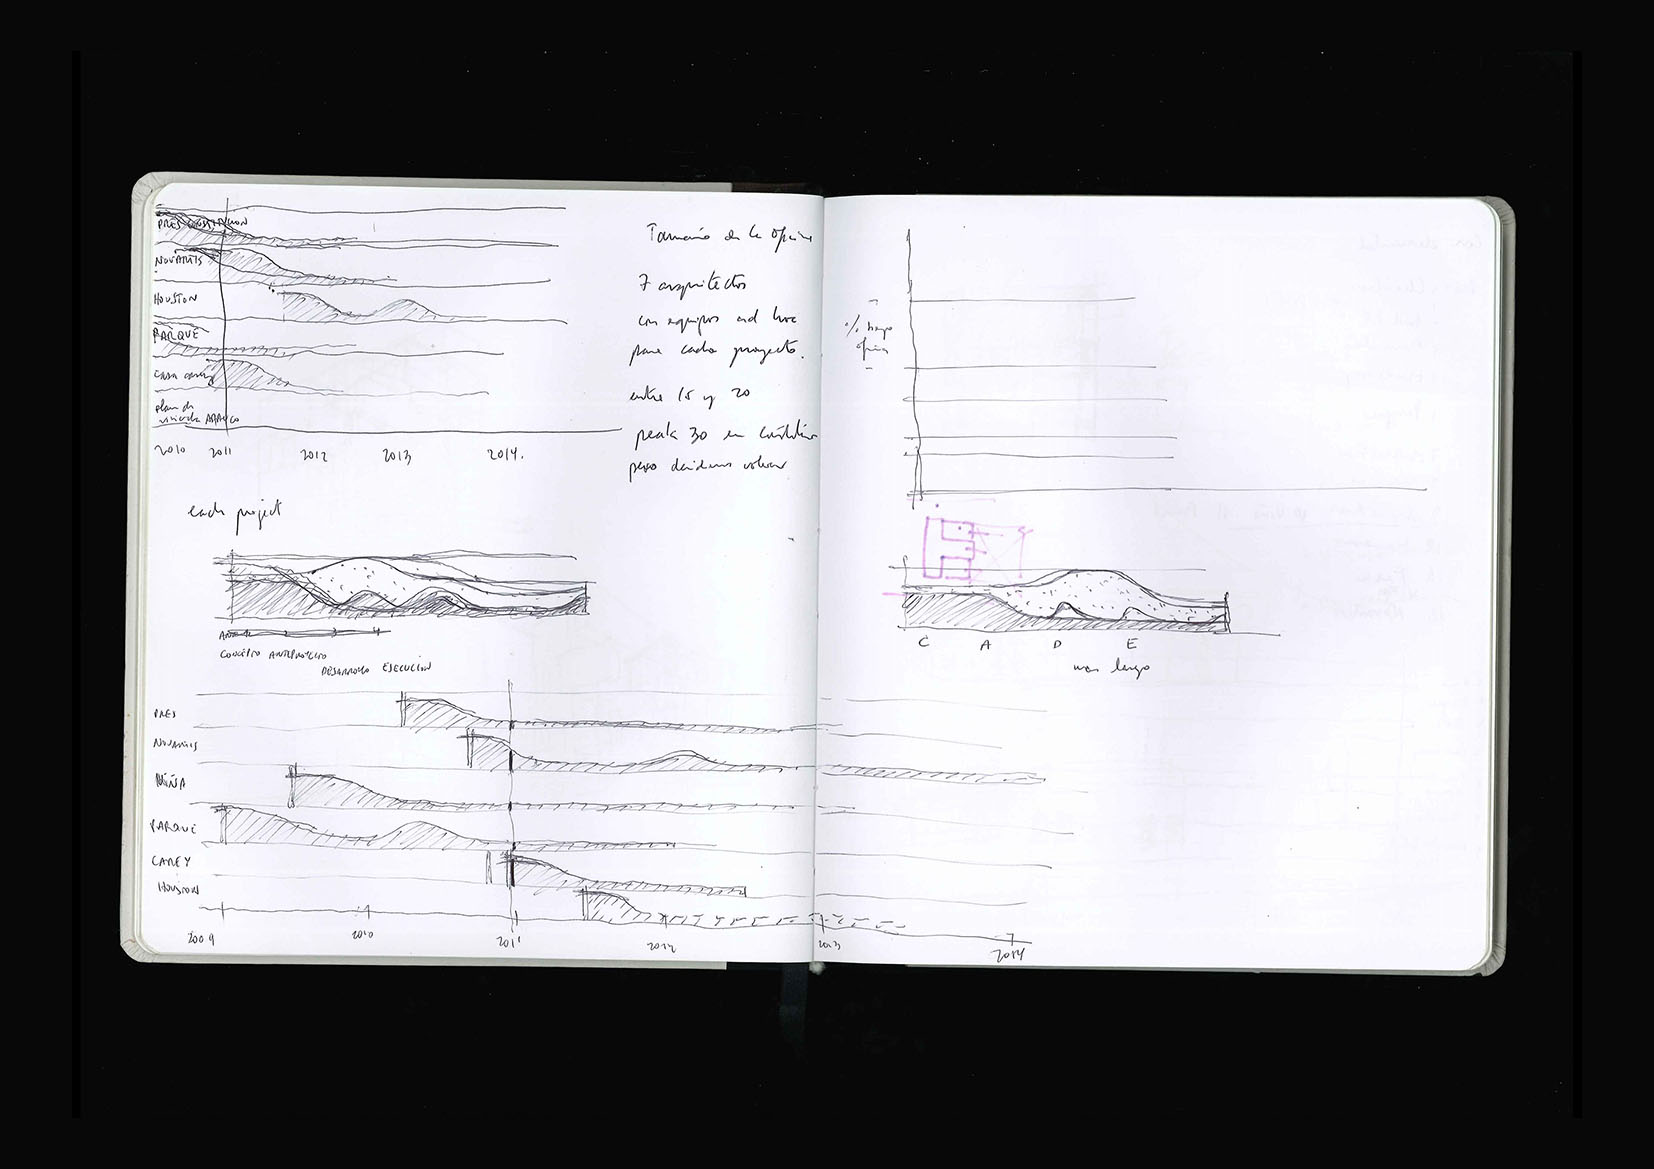 PRES CONSTITUCION
NOVARTIS
HOUSTON
PARQUE
CASA
plan de
vivienda ARAUCO
2010 2011 2012 2013 2014.
Tamaño de la oficina
7 arquitectos
con equipos ad hoc
para cada proyecto.
entre 15 y 20
peak 30 en
pero decidimos volver
% tiempo
oficina
each project
CONCEPTO ANTEPROYECTO
DESARROLLO EJECUCION
C A D E
mas largo
PRES
NOVARTIS
NIÑA
PARQUE
CAREY
HOUSTON
2009 2010 2011 2012 2013 2014